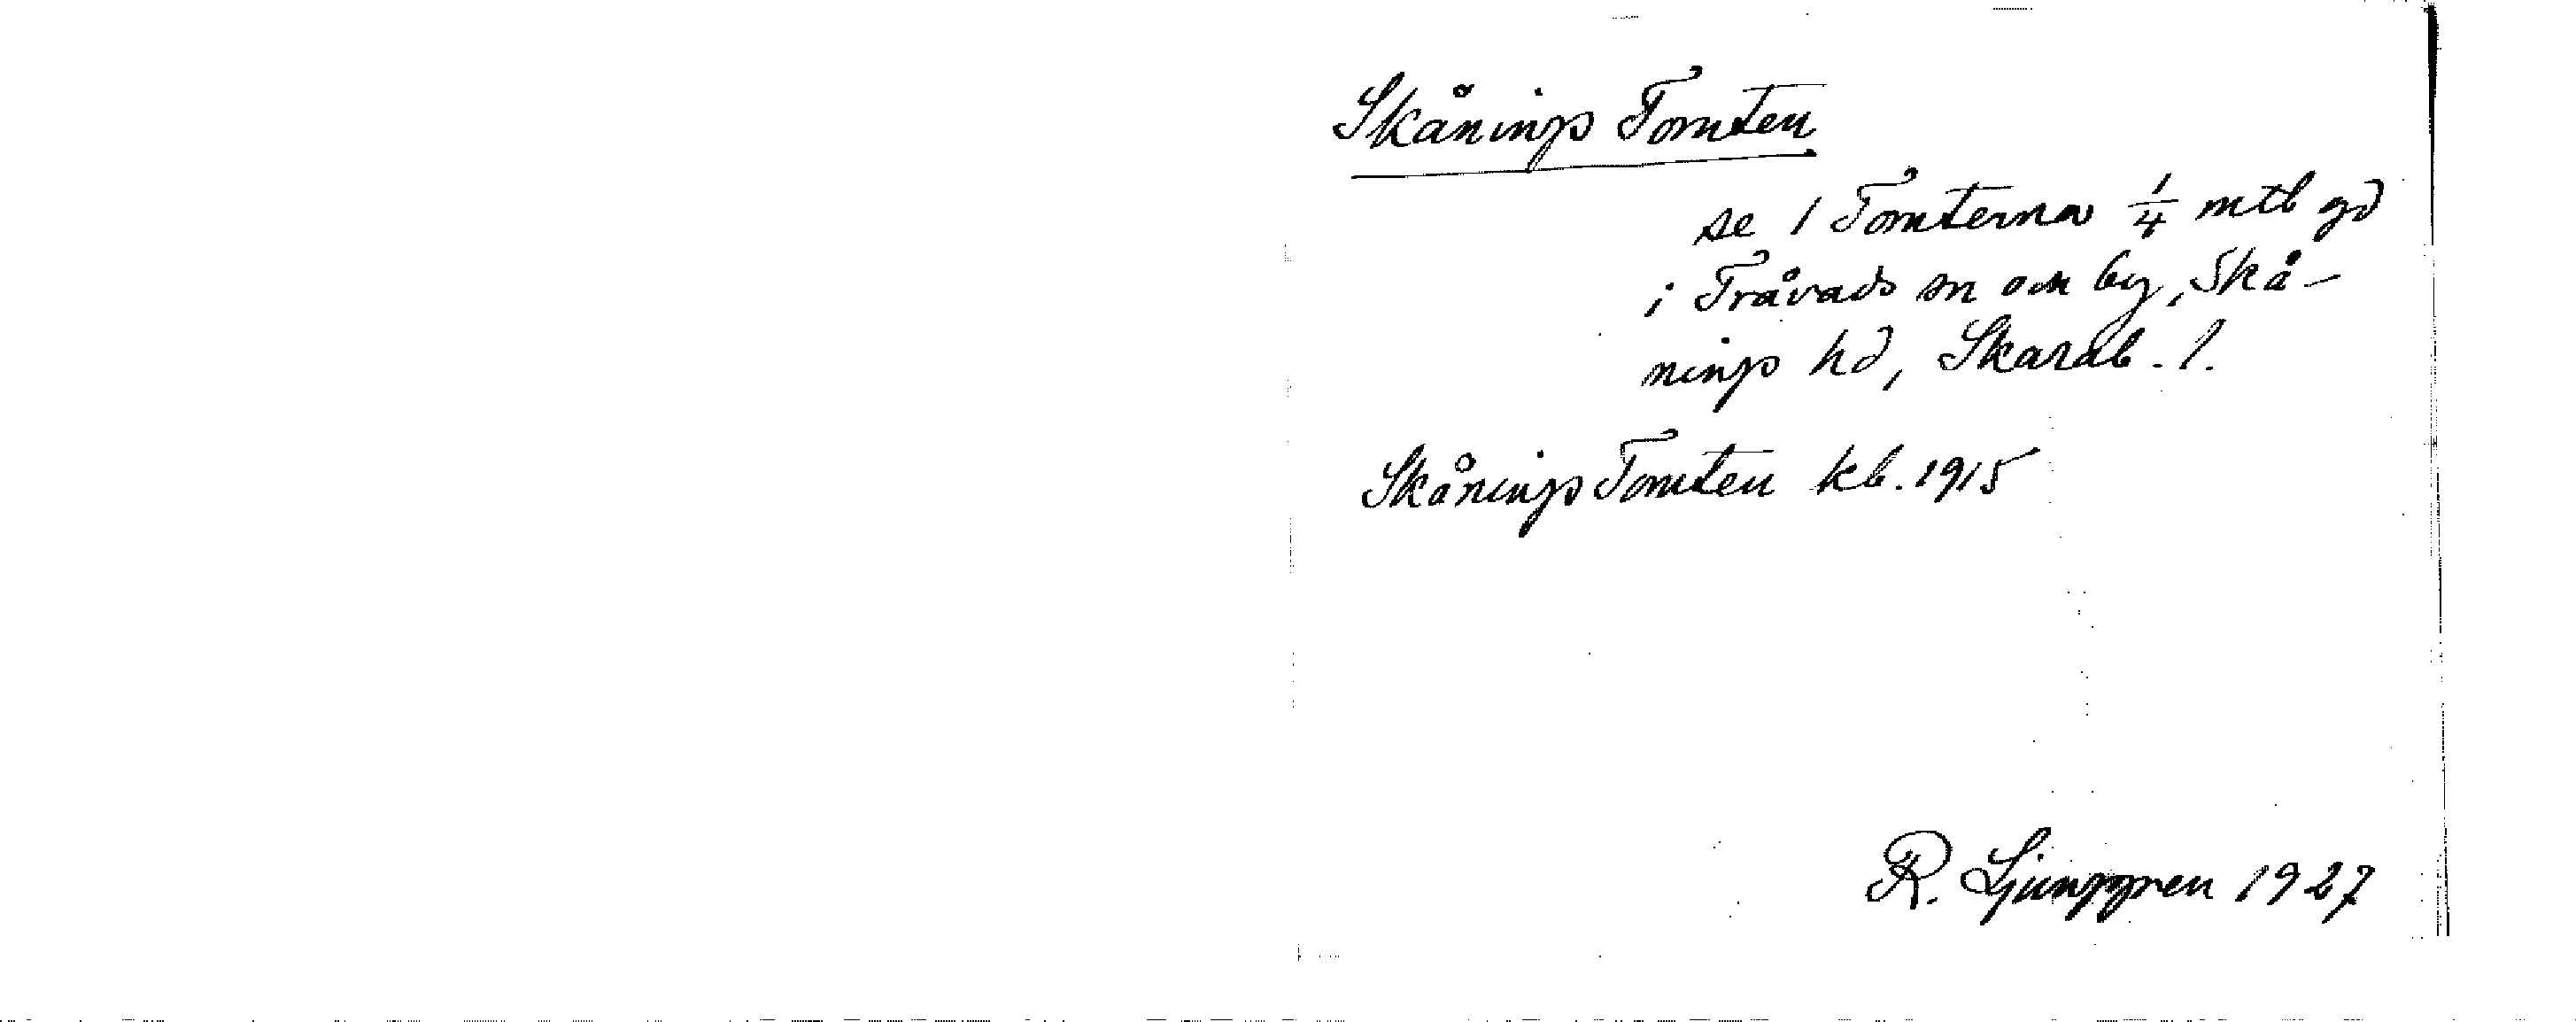 Skånings Tomten
se 1 Tomterna 1/4 mtl gd
i Tråvads sn och by, Skå-
nings hd, Skarab. l.
Skånings Tomten kb. 1915
R. Ljunggren 1927